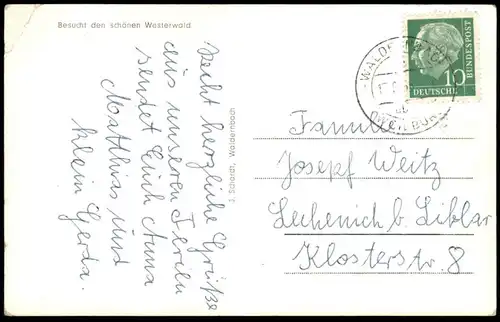 Besucht den schönen Westerwald
Recht herzliche Grüße
aus unseren Ferien
sendet Euch Anna
Matthias und
klein Gerda.
J. Schardt, Waldernbach
10
DEUTSCHE
BUNDESPOST
Familie
Josepf Weitz
Lechenich b. Liblar
Klosterstr. 8